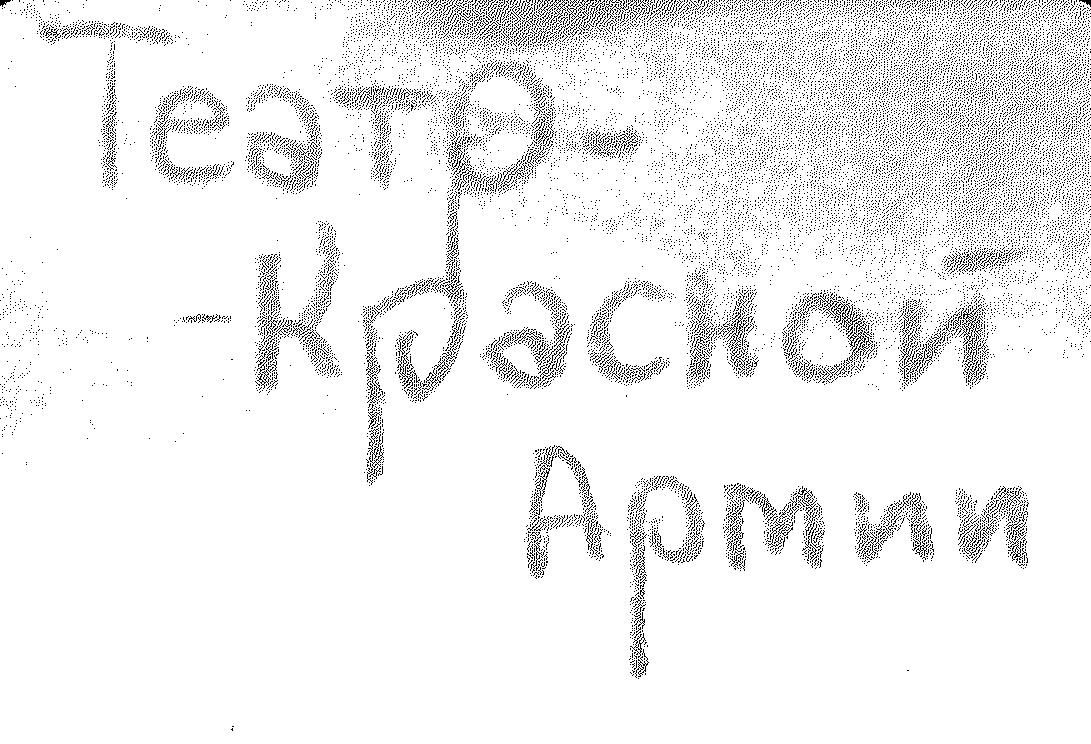 Театр-
-Красной
Армии